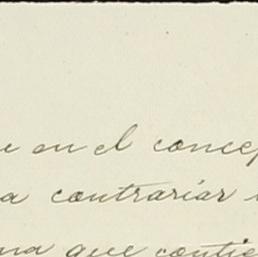 en el concep
a contrariar
na que contie